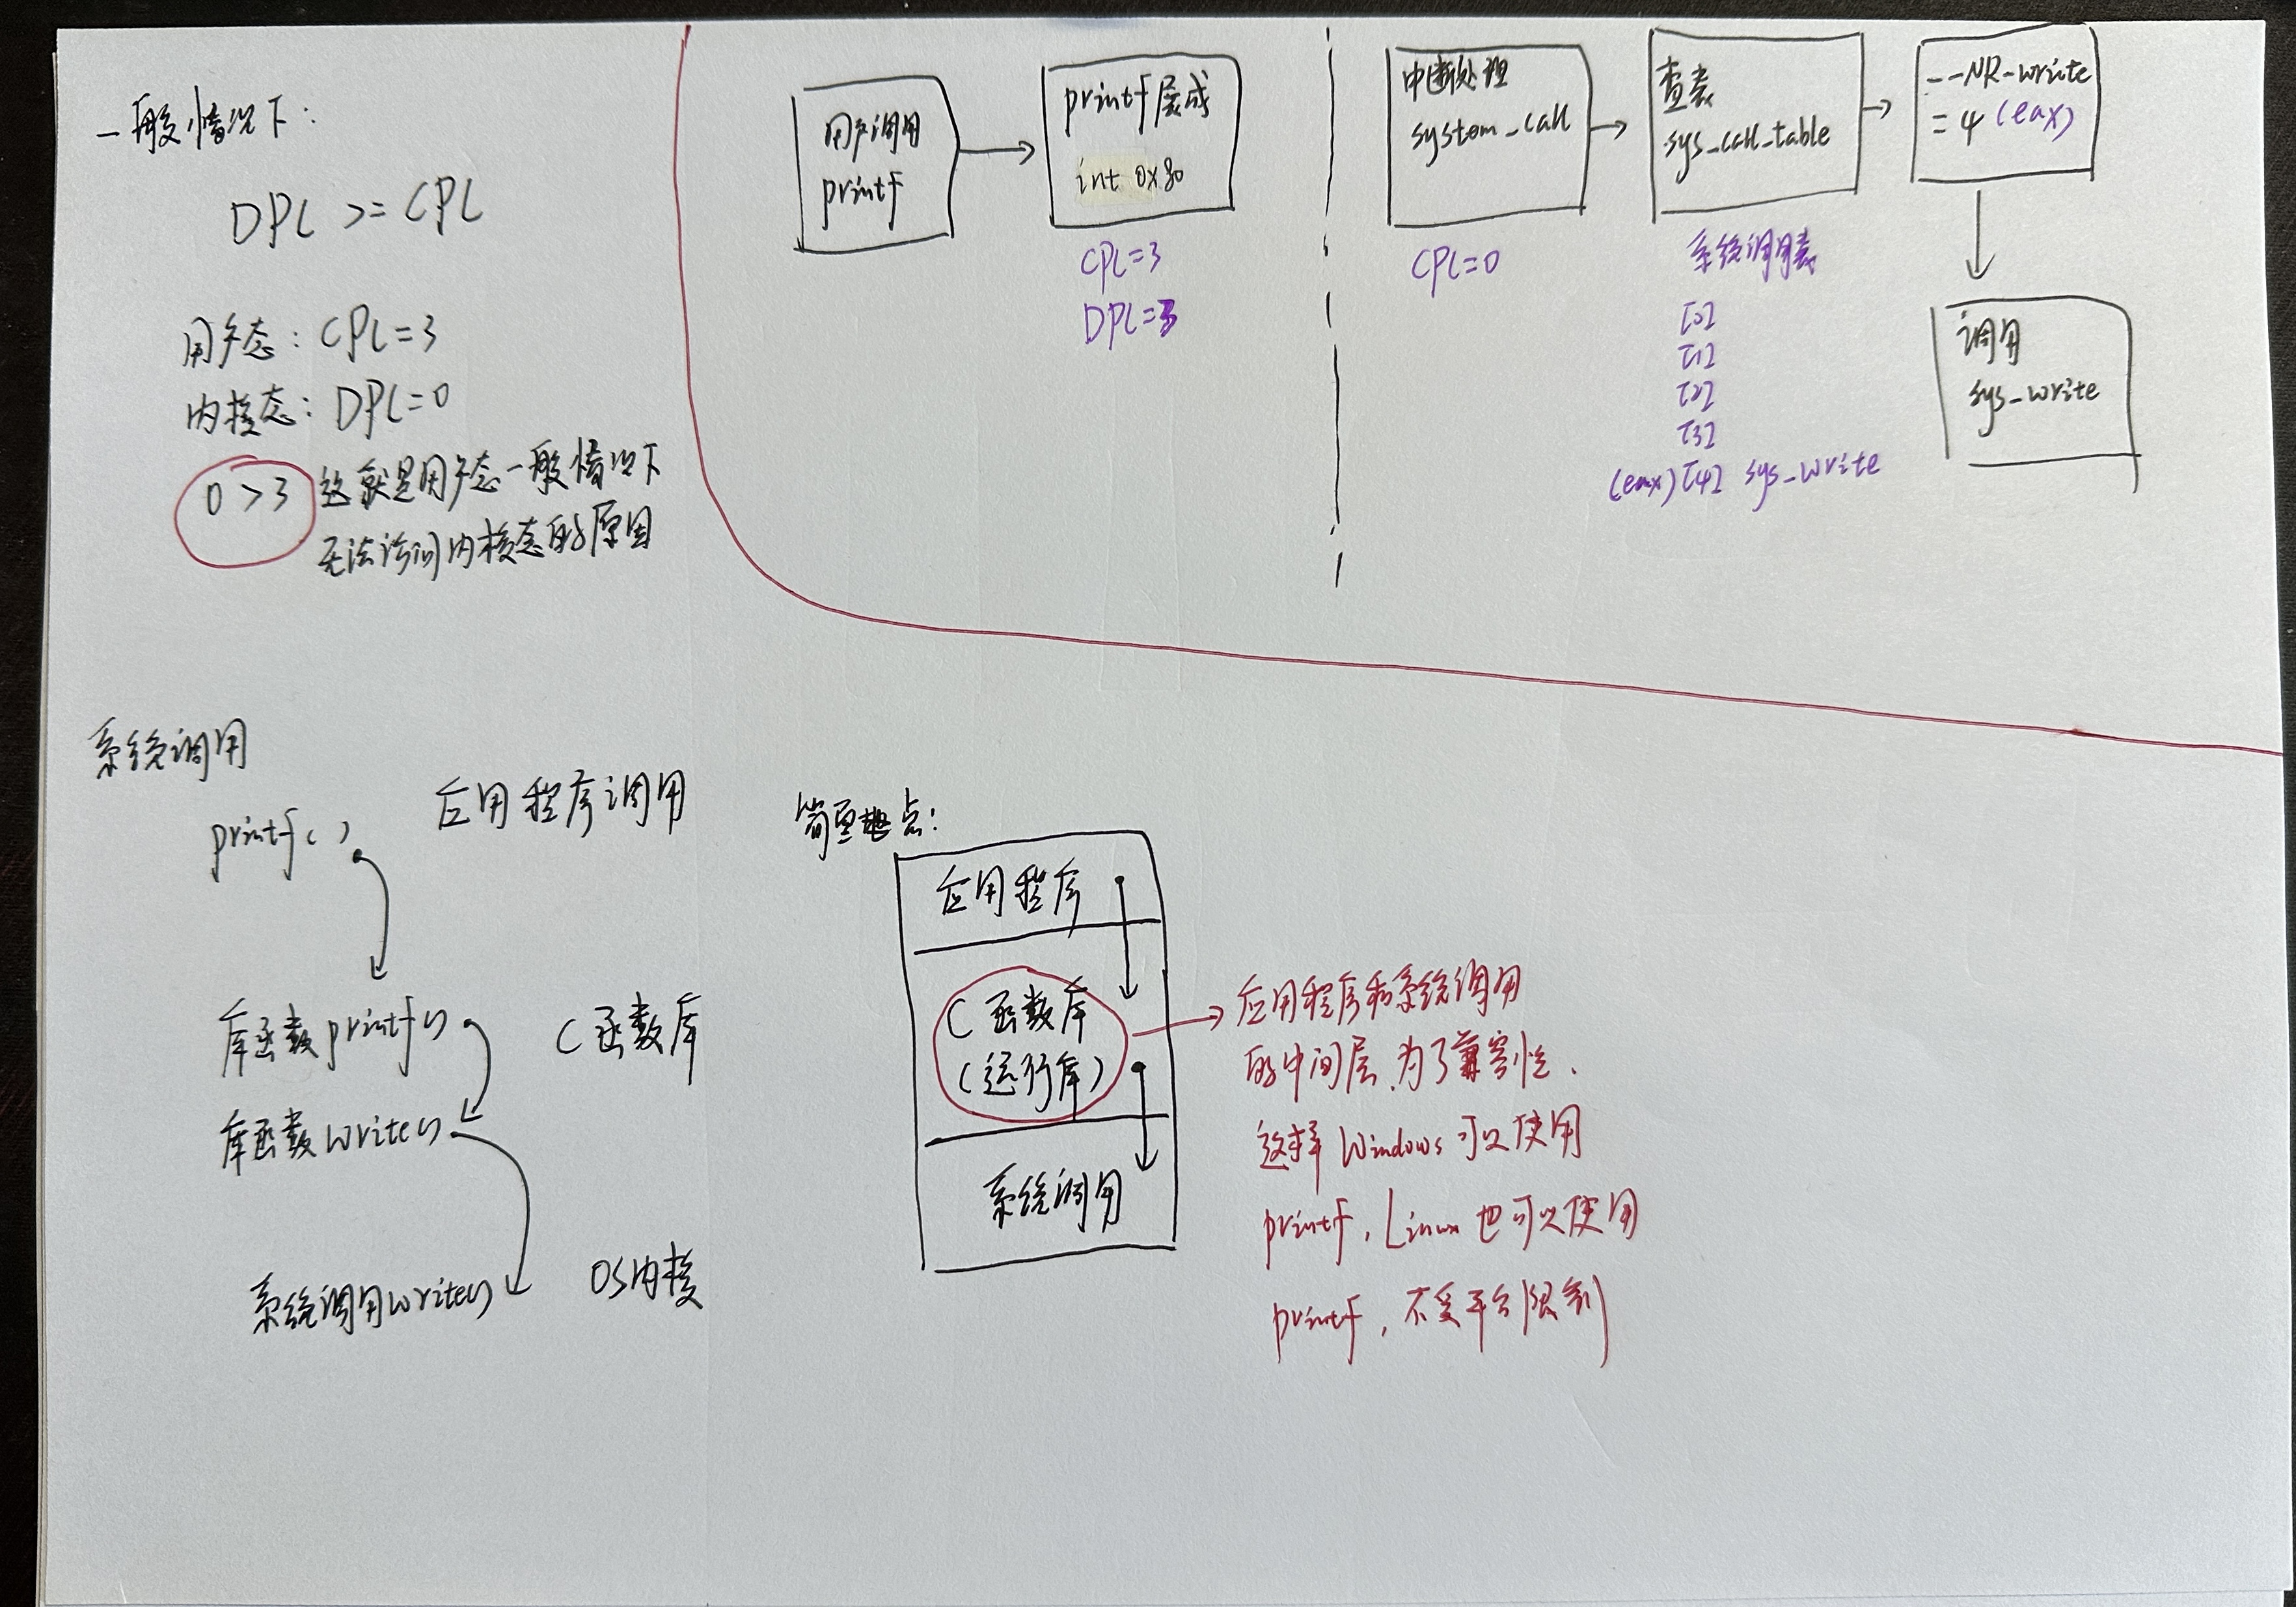 一般情况下:
DPL >= CPL
用户态: CPL=3
内核态: DPL=0
0 > 3 这就是用户态一般情况下
无法访问内核态的原因
用户调用
printf
printf展成
int 0x80
CPL=3
DPL=3
中断处理
system_call
CPL=0
查表
sys_call_table
系统调用表
[0]
[1]
[2]
[3]
(eax) [4] sys_write
--NR-write
= 4 (eax)
调用
sys_write
系统调用
printf( )
应用程序调用
库函数printf()
C函数库
库函数write()
系统调用write()
OS内核
点:
应用程序
C函数库
(运行库)
系统调用
应用程序和系统调用
的中间层,为了兼容性.
这样Windows可以使用
printf, Linux也可以使用
printf, 不受平台限制